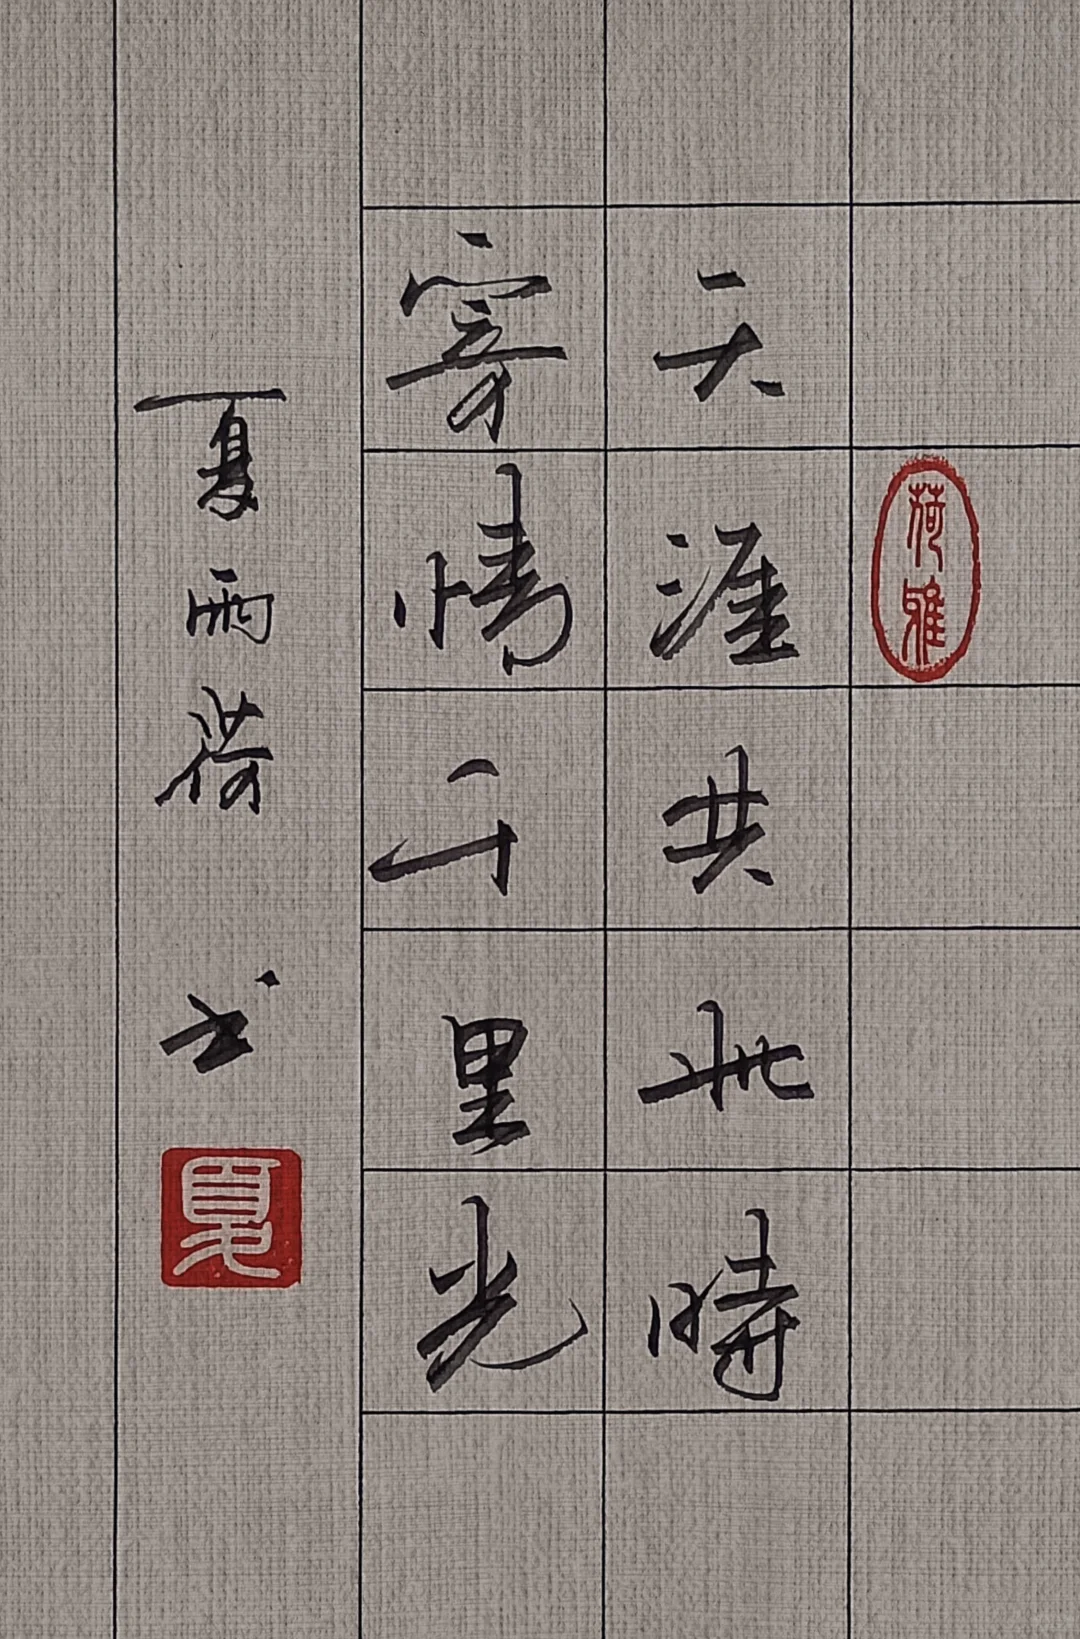 荷雅
天涯共此時
寄情千里光
夏雨荷 书
夏